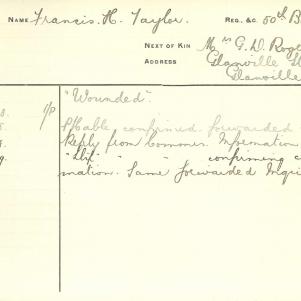 NAME Francis. H. Taylor. REG. &C. 50th B
NEXT OF KIN Mrs G. D. Roge
ADDRESS Glanville St
Glanville
1/P "Wounded".
confirmed. forwarded
Reply from Common. Information
" " " confirming c
mation. Same forwarded Inqui